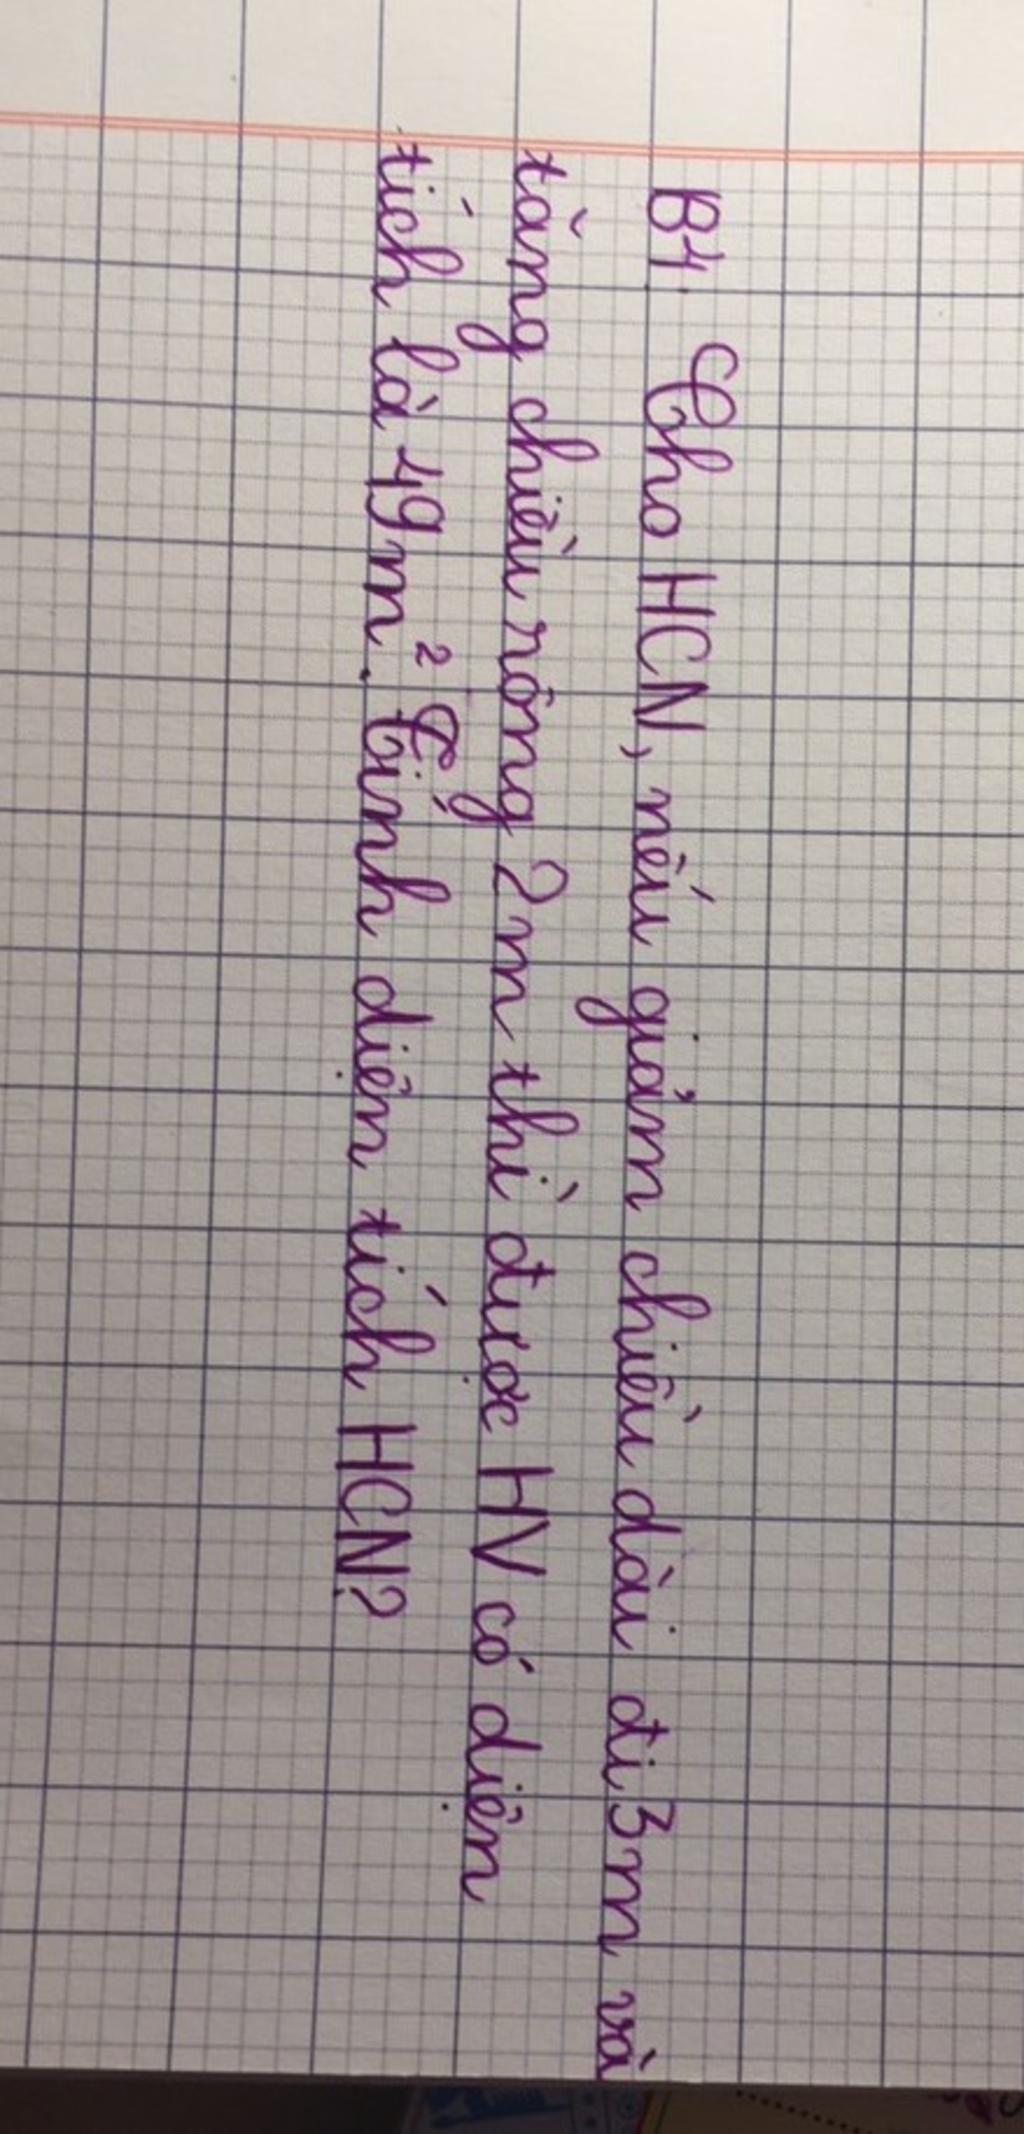 B4. Cho HCN, nếu giảm chiều dài đi 3m và
tăng chiều rộng 2m thì được HV có diện
tích là 49m². Tính diện tích HCN?